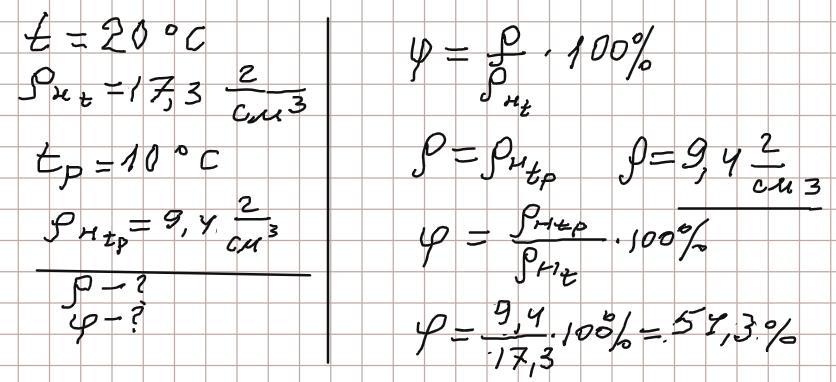 t = 20°C
ρнt = 17,3 г/см³
tр = 10°C
ρнtр = 9,4 г/см³
ρ - ?
φ - ?
φ = ρ/ρнt · 100%
ρ = ρнtр ρ = 9,4 г/см³
φ = ρнtр/ρнt · 100%
φ = 9,4/17,3 · 100% = 54,3%